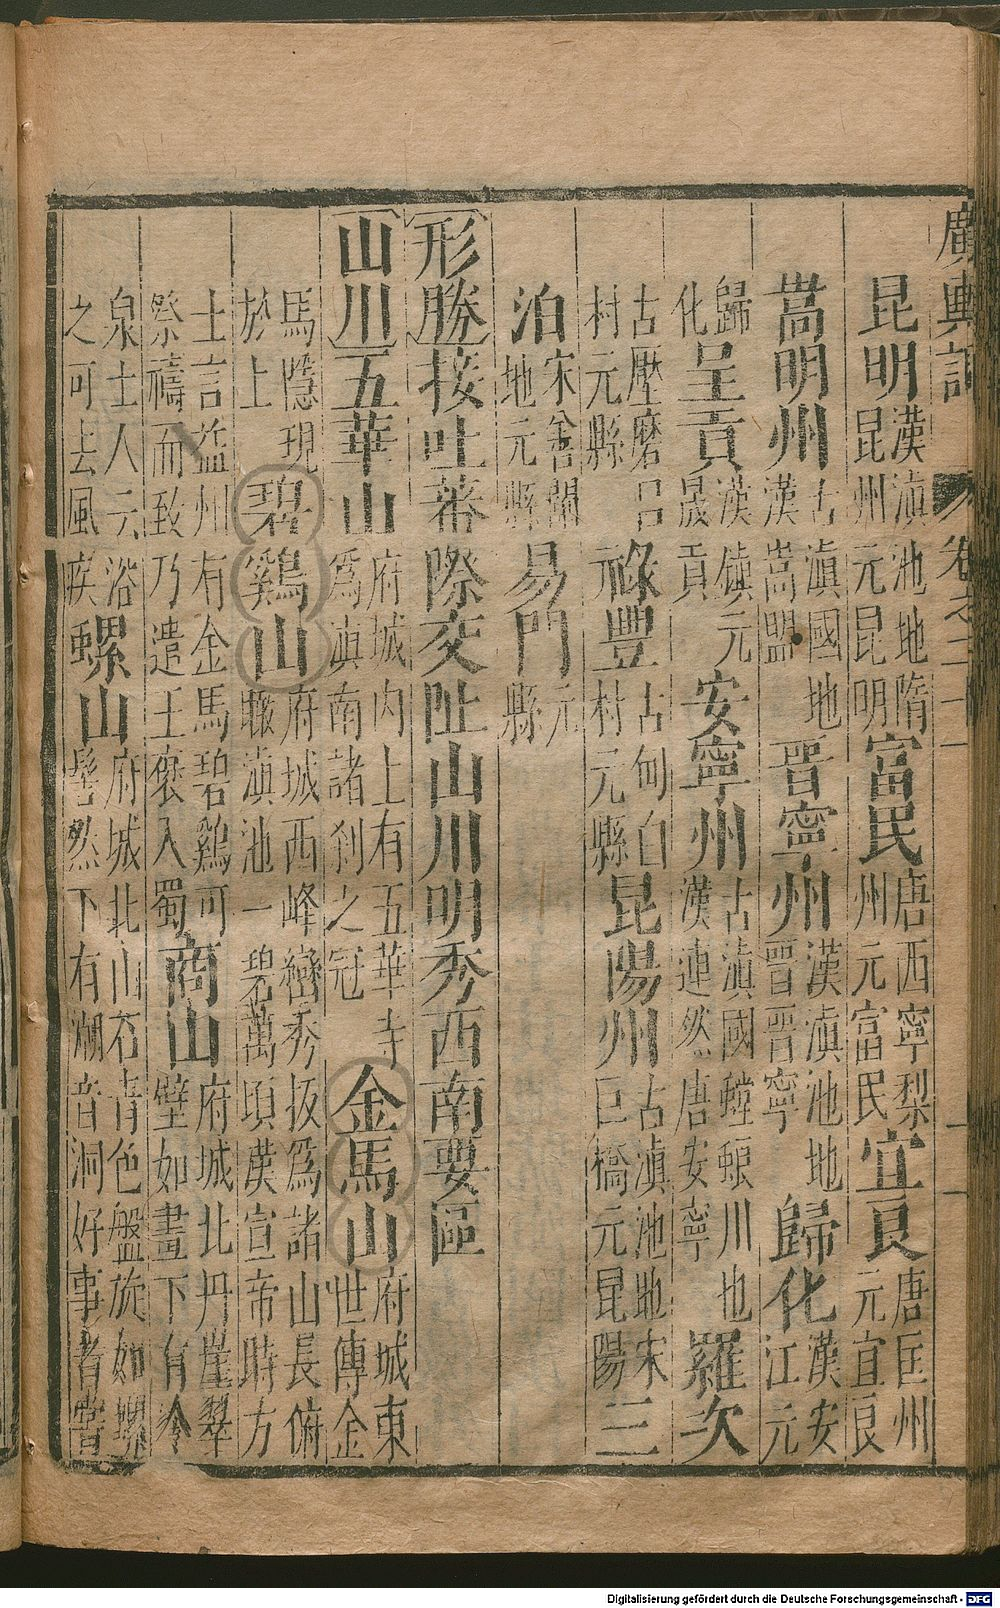 廣輿記 卷之二十一
昆明漢滇池地隋昆州元昆明富民唐西寧梨州元富民宜良唐匡州元宜良
嵩明州古滇國地漢嵩盟晋寧州漢滇池地晋晋寧歸化漢安江元
歸化呈貢漢鎮元晟貢安寧州古滇國螳蜋川地漢連然唐安寧羅次
古壓磨呂村元縣祿豐古甸白村元縣昆陽州古滇池地宋巨橋元昆陽三
泊宋善闡地元縣易門元縣
形勝接吐蕃際交阯山川明秀西南要區
山川五華山府城内上有五華寺爲滇南諸刹之冠金馬山府城東世傳金
馬隱現於上碧鷄山府城西峰巒秀拔爲諸山長俯瞰滇池一碧萬頃漢宣帝時方
士言益州有金馬碧鷄可祭禱而致乃遣王褒入蜀商山府城北丹崖翠壁如畫下有冷
泉土人云浴之可去風疾螺山府城北山石青色盤旋如螺髻然下有潮音洞好事者嘗
Digitalisierung gefördert durch die Deutsche Forschungsgemeinschaft - DFG